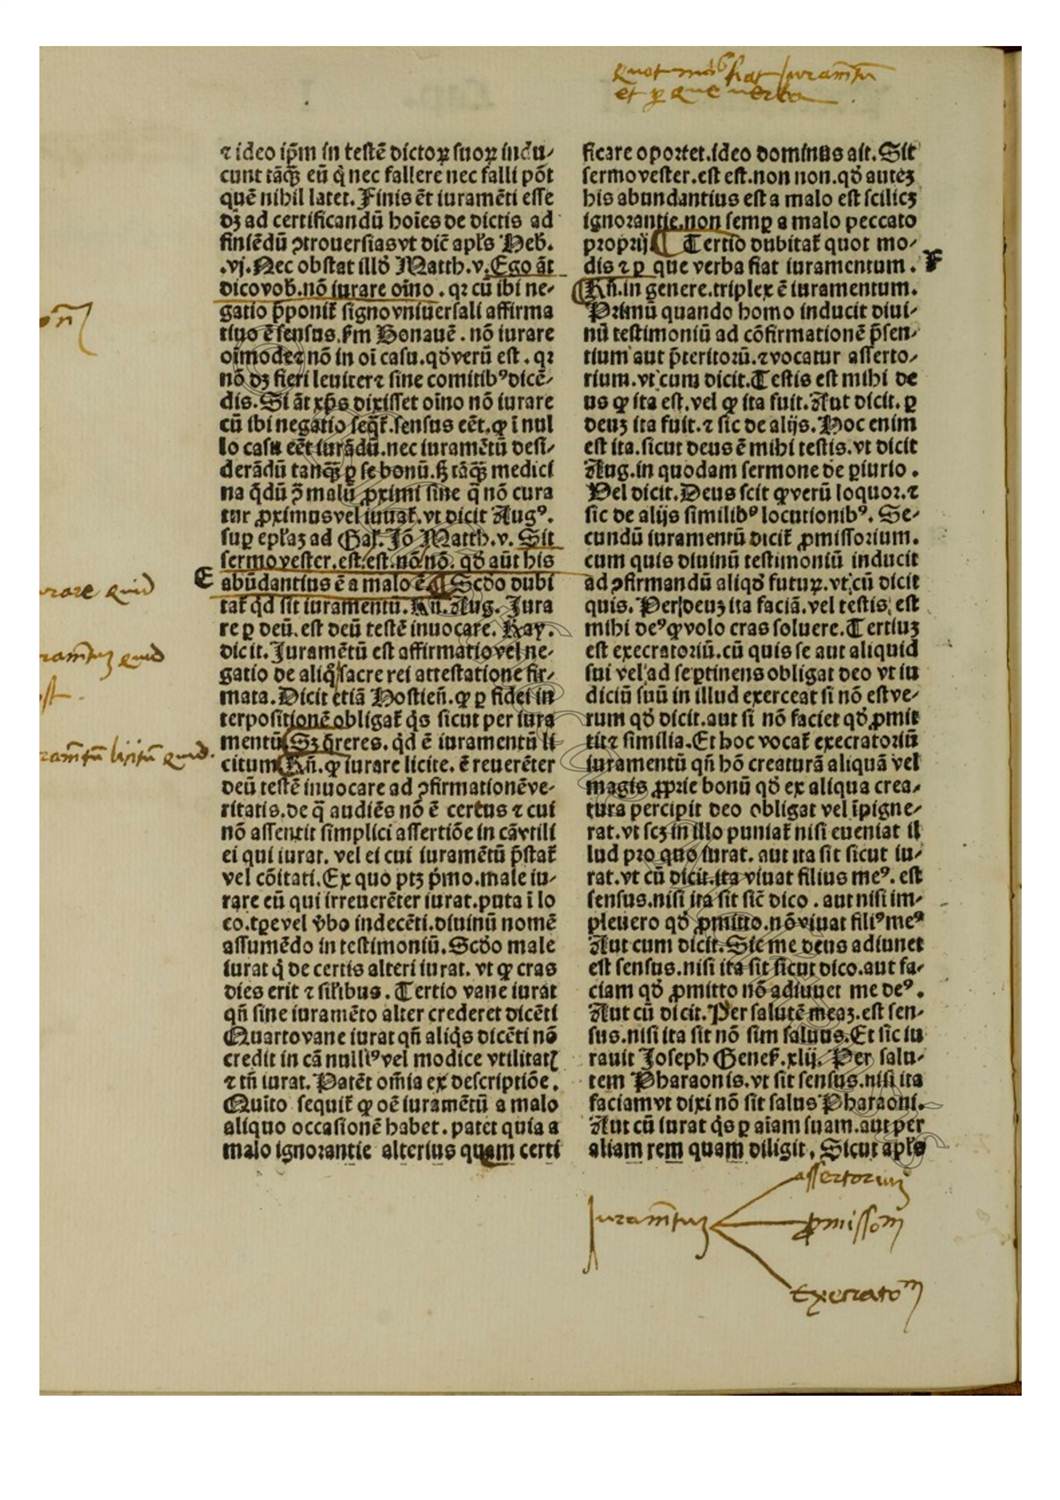 Quot modis fiat Iurame͂tu͂
et ꝑ que uerba
⁊ ideo ip̄m in testē dictoꝝ suoꝝ indu⸗
cunt tāqꝫ eū q̇ nec fallere nec falli pōt
quē nihil latet. Finis ēt iuramēti esse
dꝫ ad certificandū hoīes de dictis ad
finiēdū ꝯtrouersias vt dic̄ apl̄s Heb.
.vj. Nec obstat illḋ Matth.v. Ego āt
dico vob. nō iurare oīno . qꝛ cū ibi ne⸗
gatio p̄ponit̄ signo vniuersali affirma
tiuo ē sensus. ẜm Bonauē . nō iurare
oīmode ⁊ nō in oī casu. qḋ verū est . qꝛ
nō dꝫ fieri leuiter ⁊ sine comitibꝰ dicē⸗
dis. Si āt xp̄s dixisset oīno nō iurare
cū ibi negatio seq̄t̄. sensus eēt. ꝙ ī nul
lo casu eēt iurādū. nec iuramētū desi⸗
derādū tanqꝫ ꝑ se bonū. sꝫ tāqꝫ medici
na q̄dū p̄ malū ꝓximi sine q̄ nō cura
tur ꝓximus vel iuuat̄. vt dicit Augꝰ.
suꝑ epl̄aꝫ ad Gal̄. Jō Matth.v. Sit
sermo vester. est. est. nō nō. qḋ aūt his
E
abūdantius ē a malo ē ¶ Scḋo dubi
tat̄ qd̄ sit iuramentū. Rn̄. Aug. Jura
re ꝑ deū. est deū testē inuocare. Ray.
dicit. Juramētū est affirmatio vel ne⸗
gatio de aliq̇ sacre rei attestatione fir⸗
mata. Dicit etiā Hostien̄. ꝙ ꝑ fidei in
terpositionē obligat̄ q̇s sicut per iura
mentū Sꝫ q̄reres. qd̄ ē iuramentū li
citum Rn̄. ꝙ iurare licite. ē reuerēter
deū testē inuocare ad ꝯfirmationē ve⸗
ritatis. de q̄ audiēs nō ē certus ⁊ cui
nō assentit simplici assertiōe in cā vtili
ei qui iurat. vel ei cui iuramētū p̄stat̄
vel cōitati. Ex quo ptꝫ p̄mo. male iu⸗
rare eū qui irreuerēter iurat. puta ī lo
co. tp̄e vel v̄bo indecēti. diuinū nomē
assumēdo in testimoniū. Scḋo male
iurat q̇ de certis alteri iurat. vt ꝙ cras
dies erit ⁊ sil̄ibus . Tertio vane iurat
qn̄ sine iuramēto alter crederet dicēti
Quarto vane iurat qn̄ aliq̇s dicēti nō
credit in cā nulliꝰ vel modice vtilitatꝭ
⁊ tn̄ iurat. Patēt om̄ia ex descriptiōe.
Quīto sequit̄ ꝙ oē iuramētū a malo
aliquo occasionē habet . patet quia a
malo ignorantie alterius quam certi
ficare oportet. ideo dominus ait. Sit
sermo vester. est est. non non. qḋ auteꝫ
his abundantius est a malo est scilicꝫ
ignorantie. non semꝑ a malo peccato
proprij ¶ Tertio dubitat̄ quot mo⸗
dis ⁊ ꝑ que verba fiat iuramentum .
F
Rn̄. in genere. triplex ē iuramentum.
Primū quando homo inducit diui⸗
nū testimoniū ad cōfirmationē p̄sen⸗
tium aut p̄teritorū. ⁊ vocatur asserto⸗
rium. vt cum dicit. Testis est mihi de
us ꝙ ita est. vel ꝙ ita fuit. Aut dicit. ꝑ
deuꝫ ita fuit. ⁊ sic de alijs. Hoc enim
est ita. sicut deus ē mihi testis. vt dicit
Aug. in quodam sermone de ꝑiurio .
Vel dicit. Deus scit ꝙ verū loquor. ⁊
sic de alijs similibꝰ locutionibꝰ. Se⸗
cundū iuramentū dicit̄ ꝓmissorium.
cum quis diuinū testimoniū inducit
ad ꝯfirmandū aliqḋ futuꝝ. vt cū dicit
quis. Per deuꝫ ita faciā. vel testis est
mihi deꝰ ꝙ volo cras soluere. Tertiuꝫ
est execratoriū. cū quis se aut aliquid
sui vel ad se ꝑtinens obligat deo vt iu
diciū suū in illud exerceat si nō est ve⸗
rum qḋ dicit. aut si nō faciet qḋ ꝓmit
tit ⁊ similia. Et hoc vocat̄ execratoriū
iuramentū qn̄ hō creaturā aliquā vel
magis ꝓprie bonū qḋ ex aliqua crea⸗
tura percipit deo obligat vel īpigne⸗
rat. vt scꝫ in illo puniat̄ nisi eueniat il
lud pro quo iurat. aut ita sit sicut iu⸗
rat. vt cū dicit. ita viuat filius meꝰ. est
sensus. nisi ita sit sic̄ dico . aut nisi im⸗
pleuero qḋ ꝓmitto. nō viuat filiꝰ meꝰ
Aut cum dicit. Sic me deus adiuuet
est sensus. nisi ita sit sicut dico. aut fa⸗
ciam qḋ ꝓmitto nō adiuuet me deꝰ .
Aut cū dicit. Per salutē meaꝫ. est sen⸗
sus. nisi ita sit nō sim saluus. Et sic iu
rauit Joseph Genes̄. xlij. Per salu⸗
tem Pharaonis. vt sit sensus. nisi ita
faciam vt dixi nō sit salus Pharaoni.
Aut cū iurat q̇s ꝑ aīam suam. aut per
aliam rem quam diligit . Sicut apl̄s
urare quid
rame͂tuꝫ quid
rame͂tu͂ licitu͂ quid.
Iurame͂tuꝫ
assertoriuꝫ
ꝓmissom
Execratom